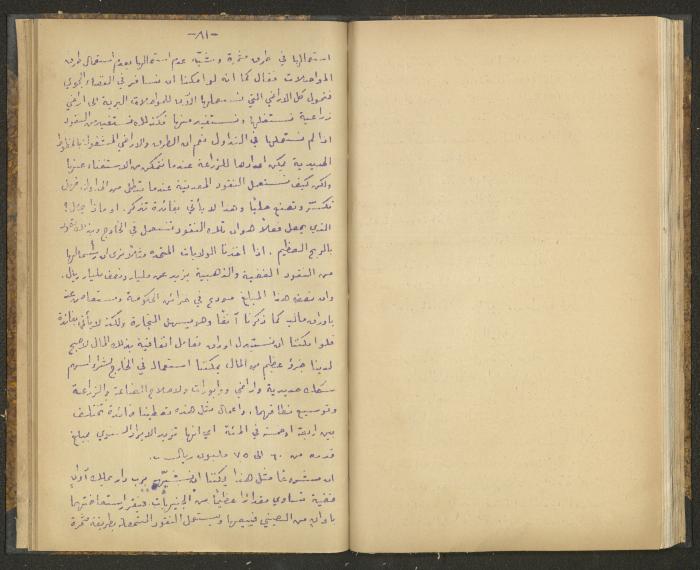 -٨١-
استعمالها في طرق مثمرة وشبّه عدم استعمالها بعدم استعمال طرق
المواصلات فقال كما انه لو امكننا ان نسافر في الفضاء الجوي
فنحول كل الاراضي التي نستعملها الآن للمواصلات البرية الى اراضي
زراعية نستغلها ونستفيد منها فكذلك نستفيد من النقود
اذا لم نستعملها في التداول نعم ان الطرق والاراضي المشغولة بالخطوط
الحديدية يمكن اعدادها للزراعة عندما نتمكن من الاستغناء عنها
ولكن كيف نستعمل النقود المعدنية عندما تتعطل من التداول فهل
تكسّر وتصنع حلياً وهذا لا يأتي بفائدة تذكر. او ماذا يعمل؟
الذي يعمل فعلاً هو ان تلك النقود تستعمل في الخارج وبذلك تعود
بالربح العظيم. اذا اخذنا الولايات المتحدة مثلاً نرى ان رأسمالها
من النقود الفضية والذهبية يزيد عن مليار ونصف مليار ريال.
وان نصف هذا المبلغ مودع في خزائن الحكومة ومستعاض عنه
باوراق مالية كما ذكرنا آنفا وهو يسهل التجارة ولكنه لا يأتي بفائدة
فلو امكننا ان نستبدل اوراق تعامل اتفاقية بذلك المال لاصبح
لدينا جزء عظيم من المال يمكننا استعماله في الخارج لشراء اسهم
سكك حديدية واراضي ووابورات ولاصلاح الصناعة والزراعة
وتوسيع نطاقهما. واعمال مثل هذه تعطينا فائدة تختلف
بين اربعة او خمسة في المئة اي انها تزيد الايراد السنوي بمبلغ
قدره من ٦٠ الى ٧٥ مليون ريال.
ان مشروعا مثل هذا يمكننا ان نشبّهه برب دار يملك آواني
فضية تساوي مقدارا عظيما من الجنيهات، فيقرر استعاضتها
باواني من الصيني فيبيعها ويستعمل النقود المتحصلة بطريقة مثمرة